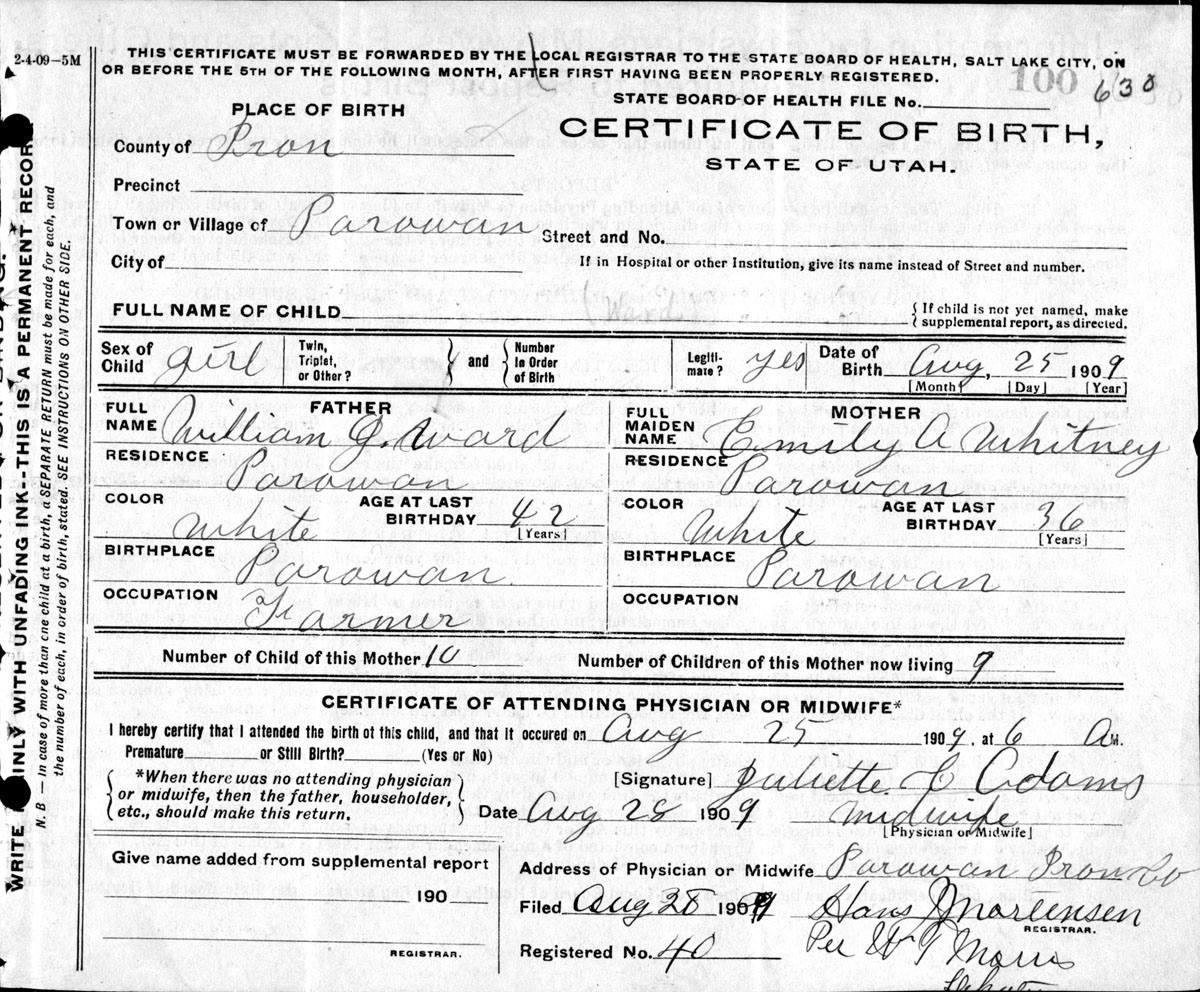 2-4-09—5M
THIS CERTIFICATE MUST BE FORWARDED BY THE LOCAL REGISTRAR TO THE STATE BOARD OF HEALTH, SALT LAKE CITY, ON
OR BEFORE THE 5TH OF THE FOLLOWING MONTH, AFTER FIRST HAVING BEEN PROPERLY REGISTERED.
100 630
STATE BOARD OF HEALTH FILE No.
PLACE OF BIRTH
CERTIFICATE OF BIRTH,
STATE OF UTAH.
County of Iron
Precinct
Town or Village of Parowan Street and No.
City of If in Hospital or other Institution, give its name instead of Street and number.
FULL NAME OF CHILD (Ward) { If child is not yet named, make
supplemental report, as directed.
Sex of Child girl Twin, Triplet, or Other? } and { Number In Order of Birth Legiti-mate? yes Date of Birth Aug, 25 1909
[Month] [Day] [Year]
FATHER MOTHER
FULL NAME William J. Ward FULL MAIDEN NAME Emily A Whitney
RESIDENCE Parowan RESIDENCE Parowan
COLOR White AGE AT LAST BIRTHDAY 42 [Years] COLOR White AGE AT LAST BIRTHDAY 36 [Years]
BIRTHPLACE Parowan BIRTHPLACE Parowan
OCCUPATION Farmer OCCUPATION
Number of Child of this Mother 10 Number of Children of this Mother now living 9
CERTIFICATE OF ATTENDING PHYSICIAN OR MIDWIFE*
I hereby certify that I attended the birth of this child, and that it occured on Aug 25 1909, at 6 A M.
Premature or Still Birth? (Yes or No)
{ *When there was no attending physician
or midwife, then the father, householder,
etc., should make this return. }
[Signature] Juliette C Adams
Date Aug 28 1909 Midwife
[Physician or Midwife]
Give name added from supplemental report
190
REGISTRAR.
Address of Physician or Midwife Parowan Iron Co
Filed Aug 28 1909 Hans J Mortensen
REGISTRAR.
Registered No. 40 Per Wm T Morris
WRITE PLAINLY WITH UNFADING INK--THIS IS A PERMANENT RECORD
N. B. — In case of more than one child at a birth, a SEPARATE RETURN must be made for each, and
the number of each, in order of birth, stated. SEE INSTRUCTIONS ON OTHER SIDE.